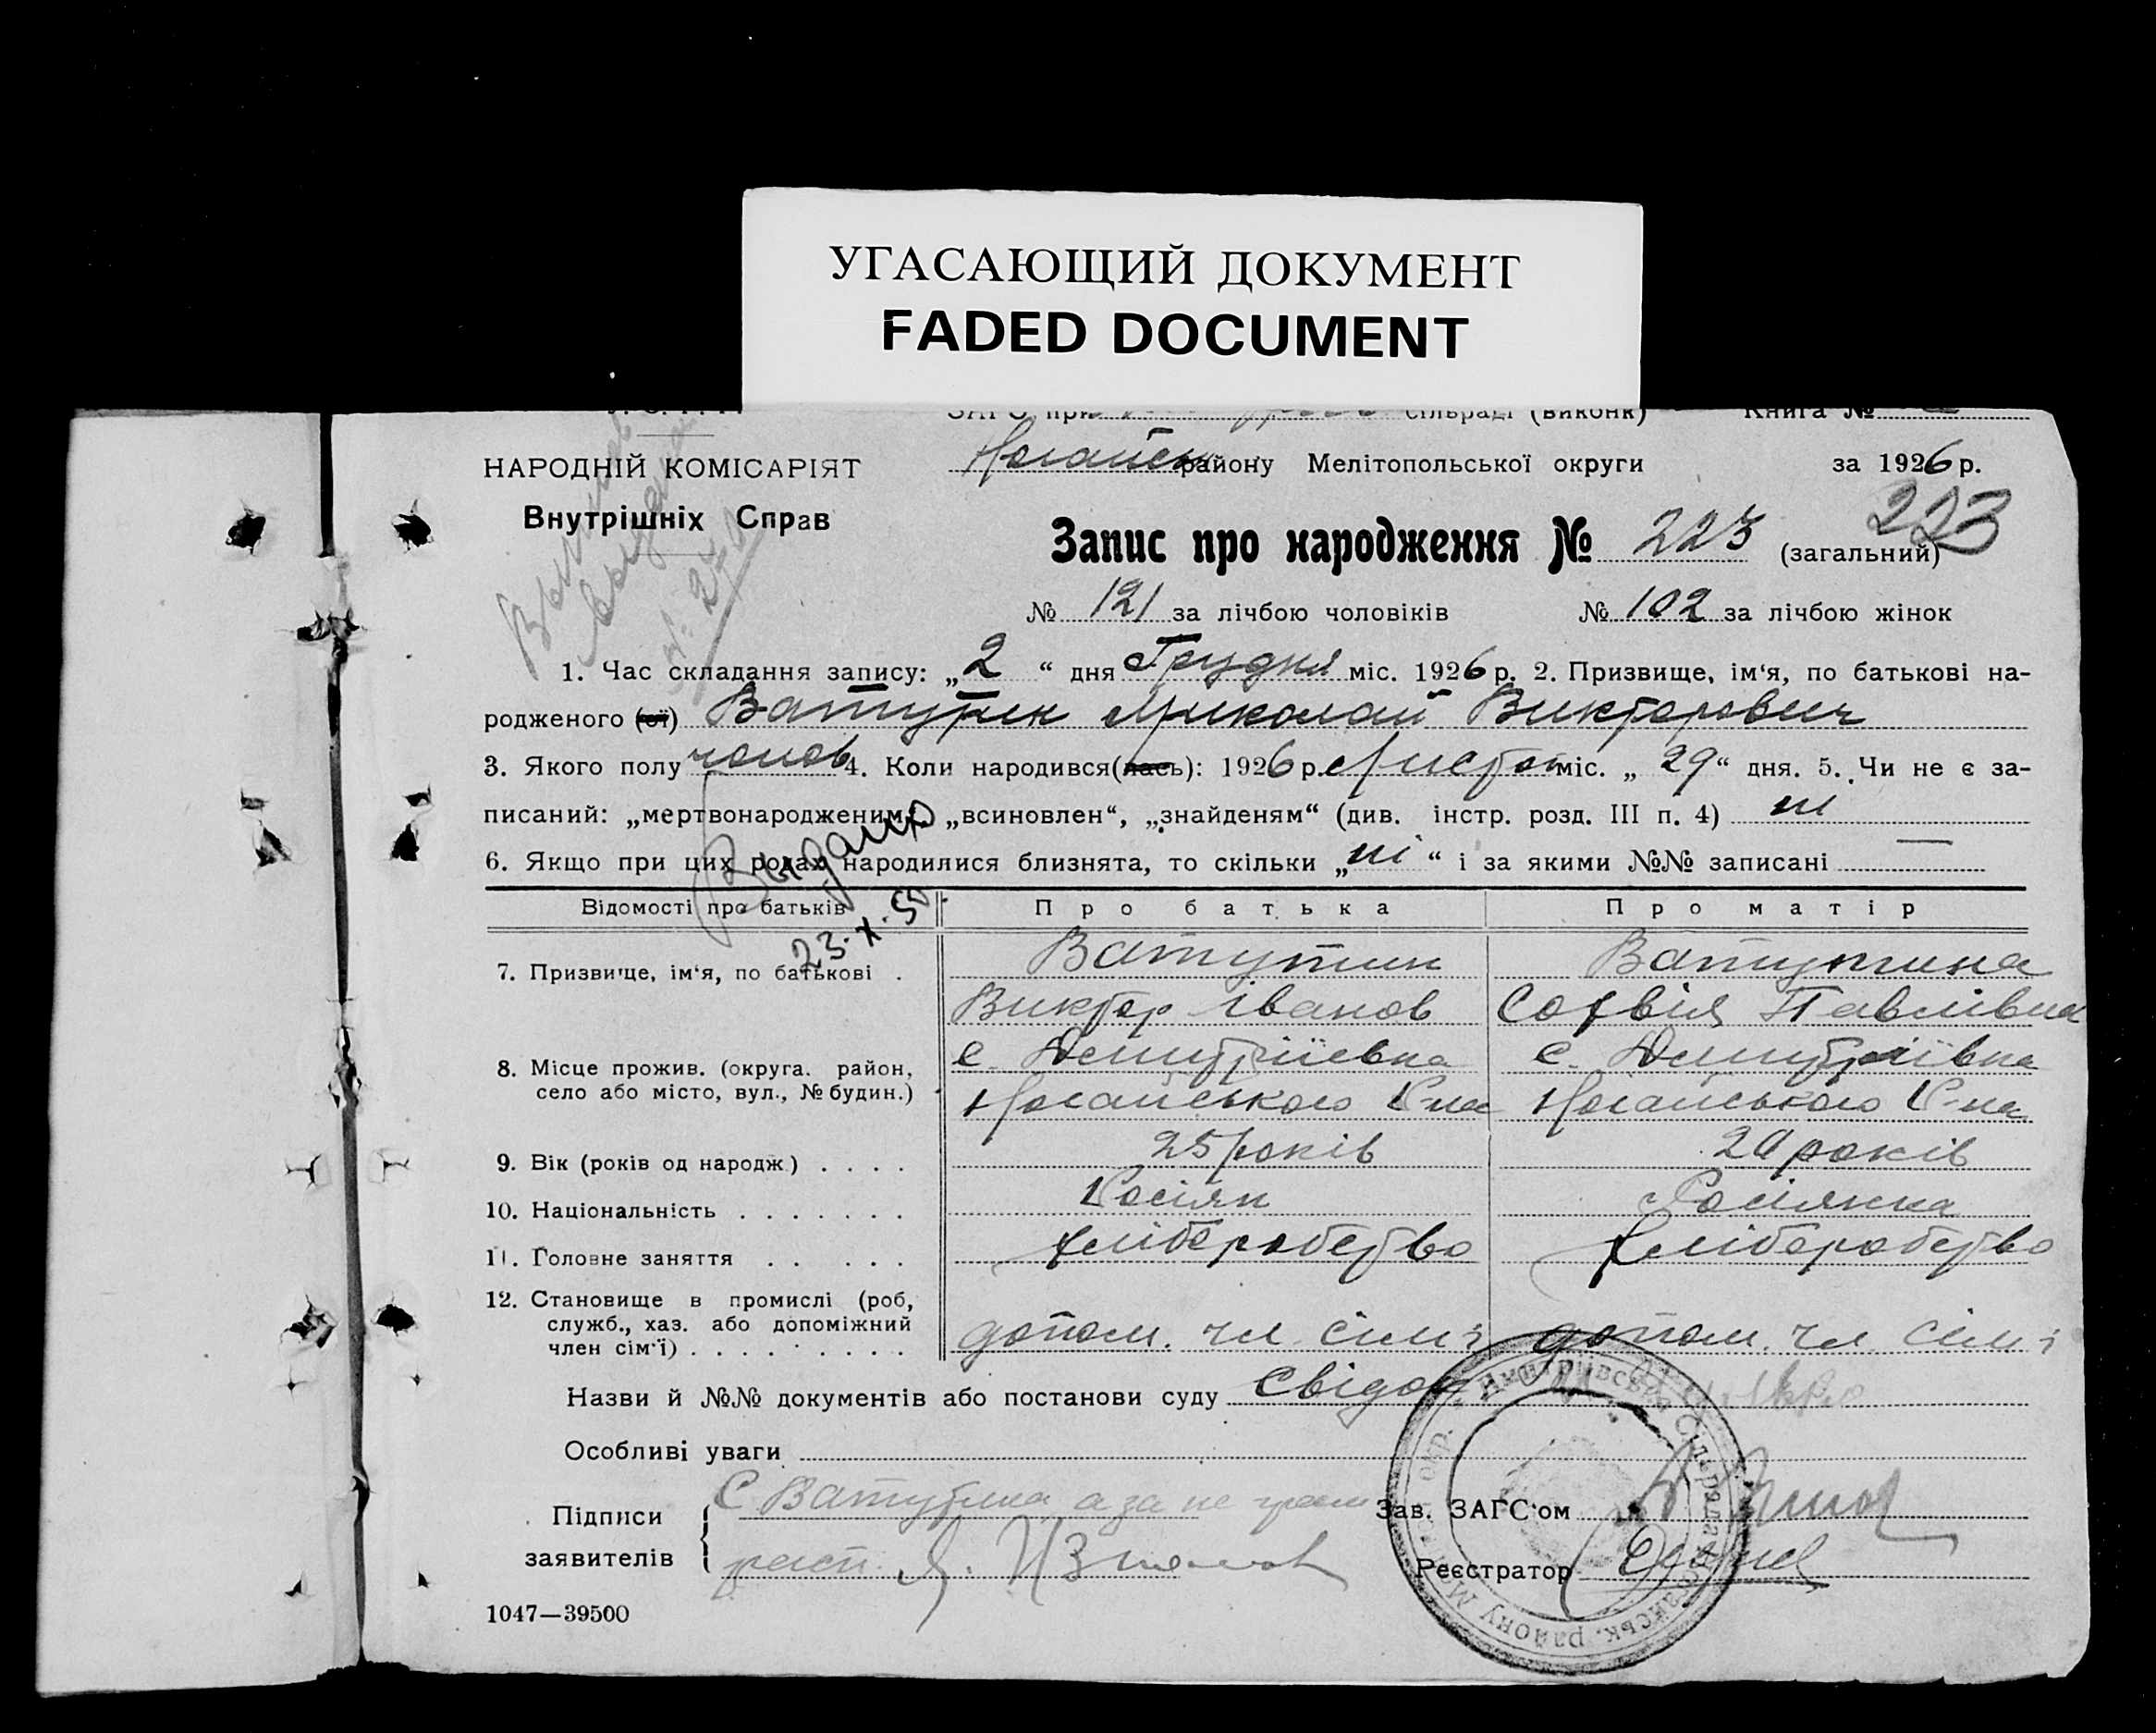 УГАСАЮЩИЙ ДОКУМЕНТ
FADED DOCUMENT
ЗАГС при сільраді (виконк) Книга №
НАРОДНІЙ КОМІСАРІЯТ
Внутрішніх Справ
Ногайськ району Мелітопольської округи за 1926 р.
223
Запис про народження № 223 (загальний)
№ 121 за лічбою чоловіків № 102 за лічбою жінок
1. Час складання запису: „2“ дня Грудня міс. 1926 р. 2. Призвище, ім‘я, по батькові на-
родженого (ої) Ватутин Миколай Викторович
3. Якого полу чолов 4. Коли народився(лась): 1926 р. Листоп міс. „29“ дня. 5. Чи не є за-
писаний: „мертвонародженим“, „всиновлен“, „знайденям“ (див. інстр. розд. III п. 4) ні
6. Якщо при цих родах народилися близнята, то скільки „ні“ і за якими №№ записані —
Выдано
23.X.50
Відомості про батьків Про батька Про матір
7. Призвище, ім‘я, по батькові . Ватутин Ватутина
Виктор Іванов Софвія Павлівна
8. Місце прожив. (округа. район, с. Дмитріївка с. Дмитріївка
село або місто, вул., № будин.) Ногайського Р-на Ногайського Р-на
9. Вік (років од народж.) . . . . 25 років 24 років
10. Національність . . . . . . . Росіян Росіянка
11. Головне заняття . . . . . хліборобство хліборобство
12. Становище в промислі (роб,
служб., хаз. або допоміжний
член сім‘ї) . . . . . . . . . допом. чл. сімї допом. чл. сімї
Назви й №№ документів або постанови суду Свідоц
Особливі уваги
Підписи С Ватутина а за не грам Зав. ЗАГС‘ом
заявителів расп. Реєстратор
1047—39500